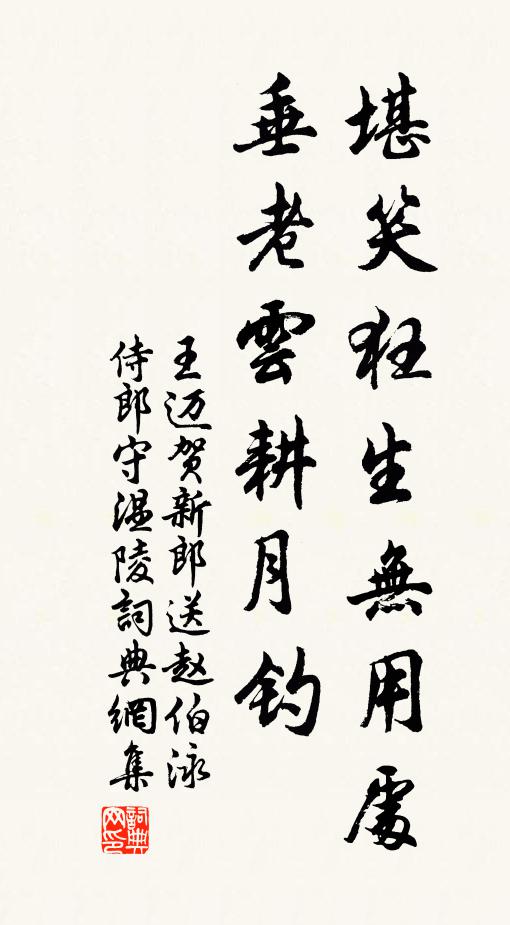 堪笑狂生無用處
垂老雲耕月钓
王迈贺新郎送赵伯泳
侍郎守温陵詞典網集
詞典
网印